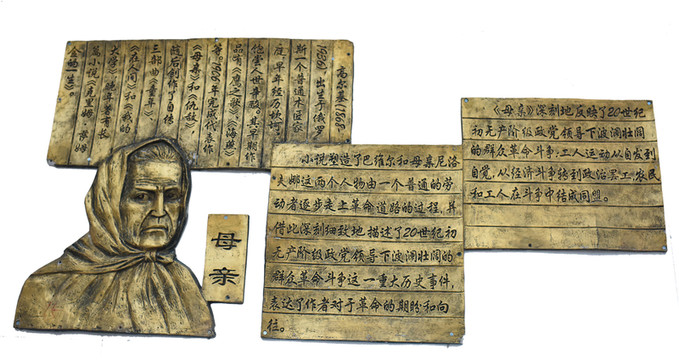 高尔基(1868-
1936) 出生于俄罗
斯一个普通木匠家
庭 早年经历坎坷
其早期作
品有《鹰之歌》《海燕》
等。1906年完成代表作
《母亲》和《仇敌》
随后创作了自传
三部曲《童年》
《在人间》和《我的
大学》。晚年著有长
篇小说《克里姆·萨姆
金的一生》
母亲
小说塑造了巴维尔和母亲尼洛
夫娜这两个人物由一个普通的劳
动者逐步走上革命道路的过程,并
借此深刻细致地描述了20世纪初
无产阶级政党领导下波澜壮阔的
群众革命斗争这一重大历史事件,
表达了作者对于革命的期盼和向
往。
《母亲》深刻地反映了20世纪
初无产阶级政党领导下波澜壮阔
的群众革命斗争:工人运动从自发到
自觉,从经济斗争转到政治罢工,农民
和工人在斗争中结成同盟。